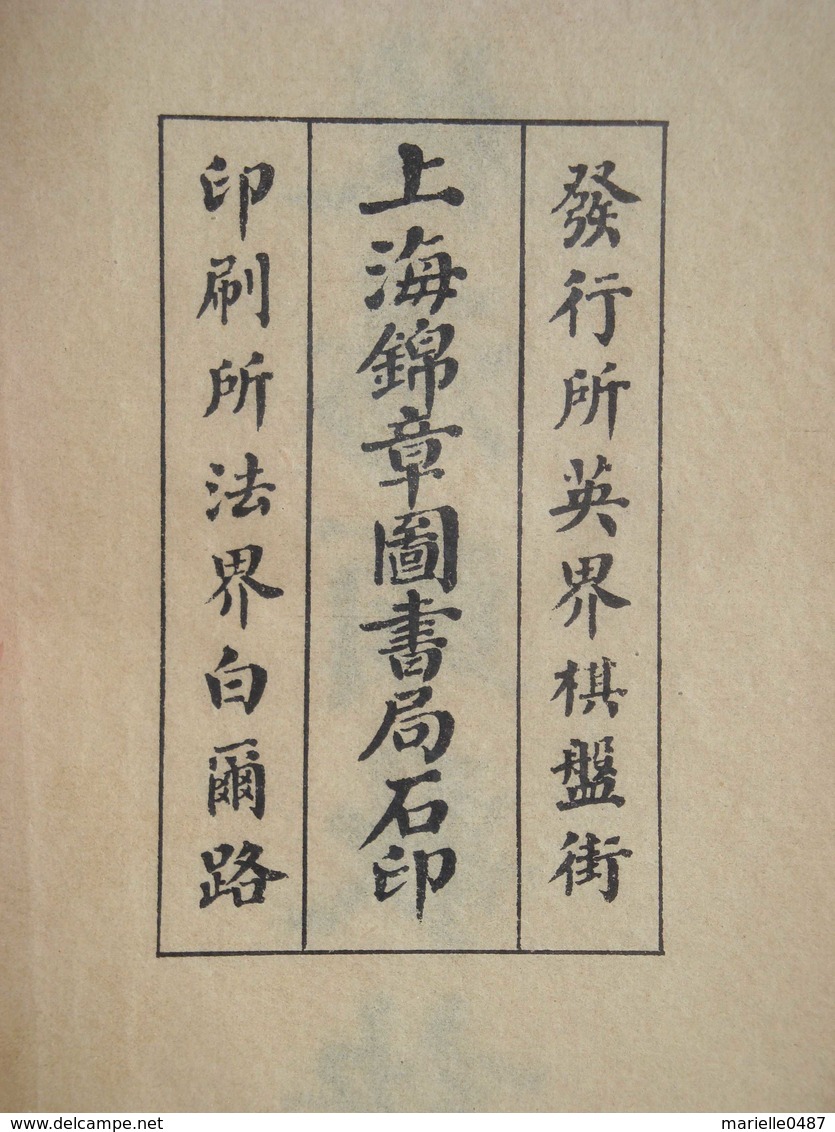 發行所英界棋盤街
上海錦章圖書局石印
印刷所法界白爾路
http://www.delcampe.net
marielle0487